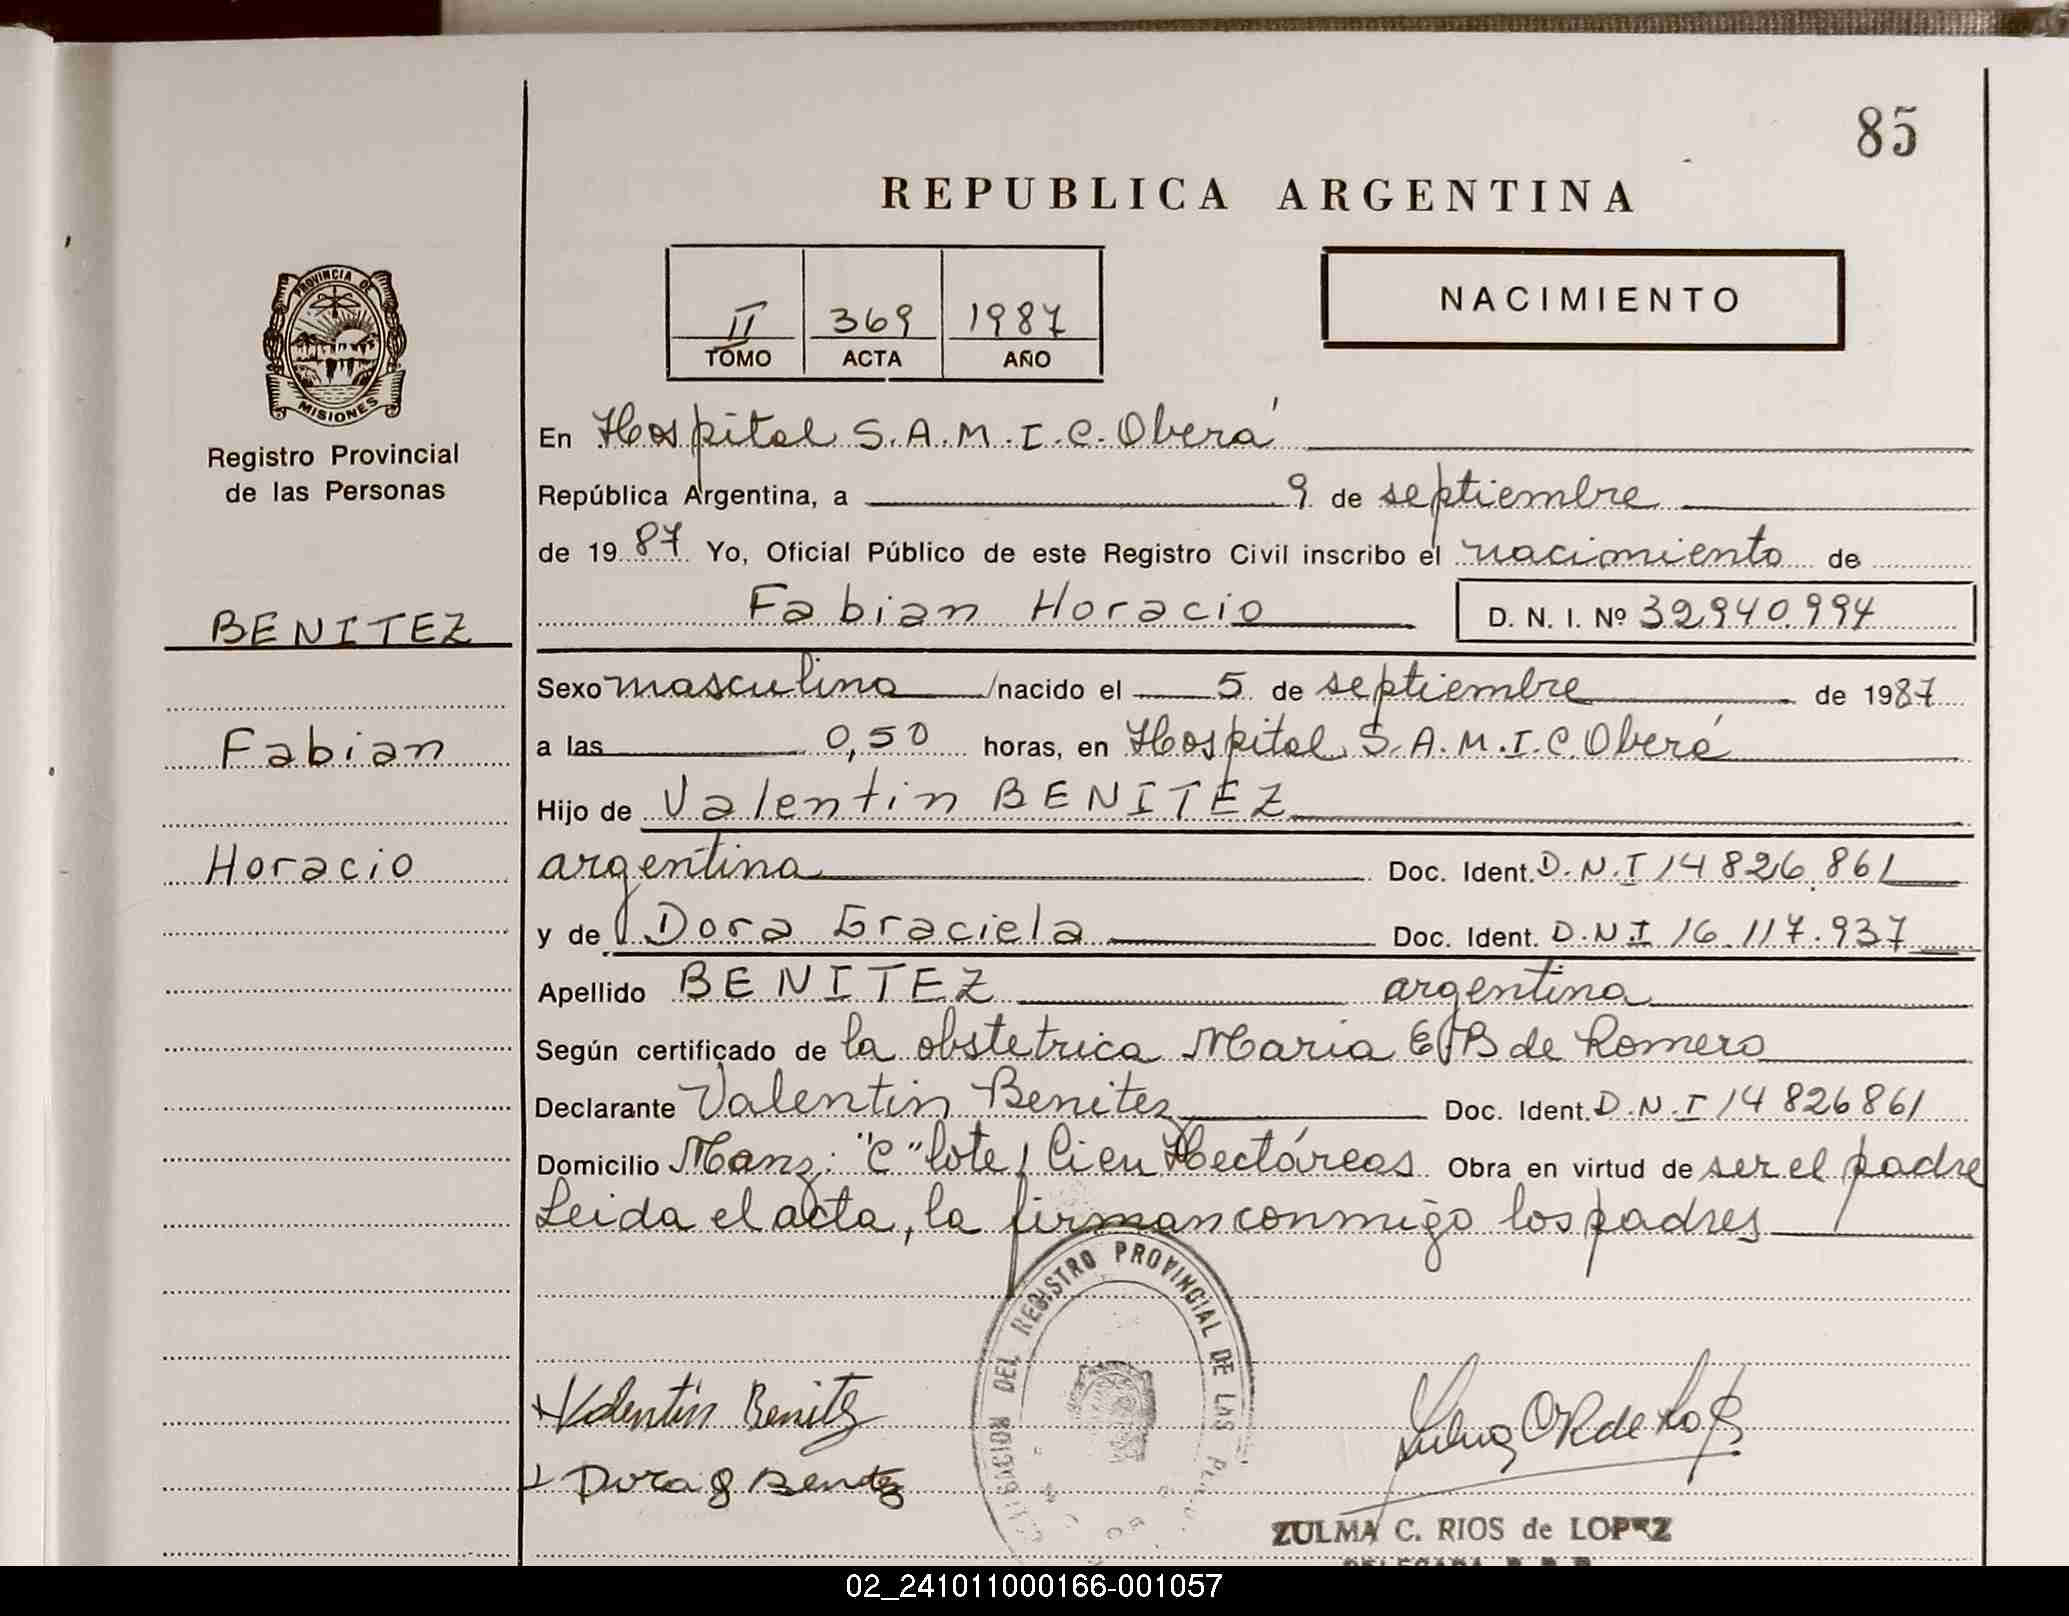 85
REPUBLICA ARGENTINA
II 369 1987
TOMO ACTA AÑO
NACIMIENTO
PROVINCIA DE
MISIONES
Registro Provincial
de las Personas
BENITEZ
Fabian
Horacio
En Hospital S.A.M.I.C. Oberá
República Argentina, a 9 de septiembre
de 1987 Yo, Oficial Público de este Registro Civil inscribo el nacimiento de
Fabian Horacio D. N. I. Nº 32.940.994
Sexo masculino /nacido el 5 de septiembre de 1987
a las 0,50 horas, en Hospital S.A.M.I.C. Oberá
Hijo de Valentin BENITEZ
argentina Doc. Ident. D.N.I 14 826.861
y de Dora Graciela Doc. Ident. D.N.I 16.117.937
Apellido BENITEZ argentina
Según certificado de la obstetrica Maria de Romero
Declarante Valentin Benitez Doc. Ident. D.N.I 14 826861
Domicilio Manz: "C" lote 1 Cien Hectáreas Obra en virtud de ser el padre
Leida el acta, la firman conmigo los padres
DEL REGISTRO PROVINCIAL DE LAS
Valentin Benitez
Dora G Benitez
ZULMA C. RIOS de LOPEZ
02_241011000166-001057